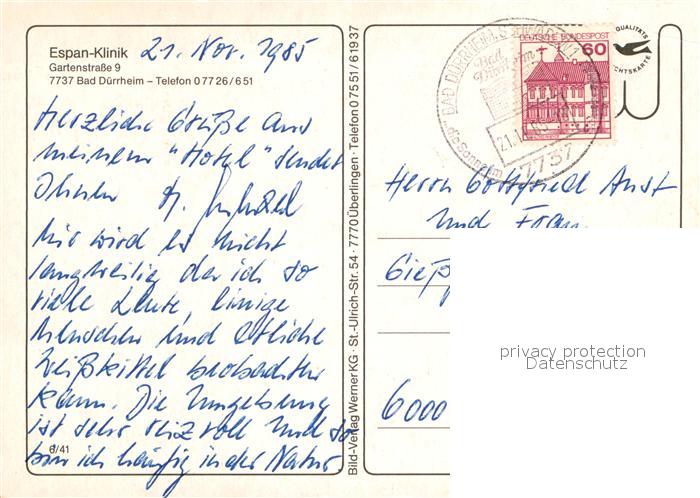 Espan-Klinik 21. Nov. 1985
Gartenstraße 9
7737 Bad Dürrheim – Telefon 07726/651
Herzliche Grüße aus
meinem "Hotel" sendet
Ihnen
Mir wird es nicht
langweilig da ich so
viele Leute, einige
Menschen und etliche
Weißkittel beobachten
kann. Die Umgebung
ist sehr reizvoll und so
bin ich häufig in der Natur
6/41
Bild-Verlag Werner KG · St.-Ulrich-Str. 54 · 7770 Überlingen · Telefon 07551/61937
DEUTSCHE BUNDESPOST
60
QUALITÄTS
BAD DÜRRHEIM
Bad
Dürrheim
7737
Herrn Gottfried
und Frau
6000
privacy protection
Datenschutz